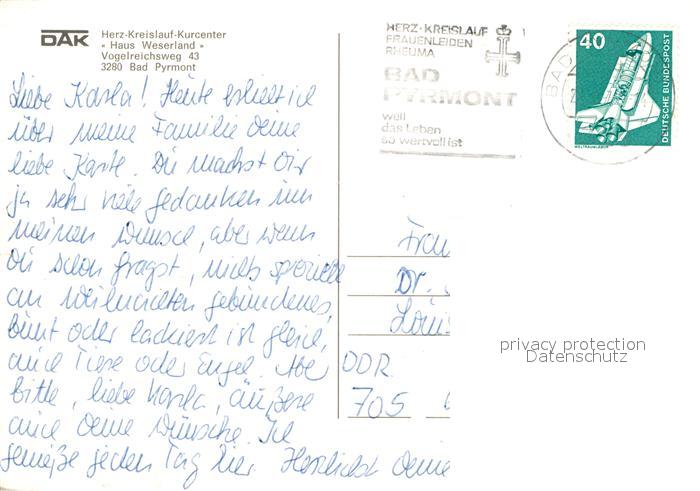 DAK
Herz-Kreislauf-Kurcenter
« Haus Weserland »
Vogelreichsweg 43
3280 Bad Pyrmont
HERZ-KREISLAUF
FRAUENLEIDEN
RHEUMA
BAD
PYRMONT
weil
das Leben
so wertvoll ist
BAD
40
DEUTSCHE BUNDESPOST
WELTRAUMLABOR
Liebe Karla! Heute erhielt ich
über meine Familie deine
liebe Karte. Du machst Dir
ja sehr viele Gedanken um
meinen Wunsch, aber wenn
Du schon fragst, nichts spezielle
an Weihnachten gebundenes,
bunt oder lackiert ist gleich,
auch Tiere oder Engel. Aber
bitte, liebe Karla, äußere
auch deine Wünsche. Ich
genieße jeden Tag hier. Herzlichst Deine
Frau
Dr.
Louis
DDR
705
privacy protection
Datenschutz